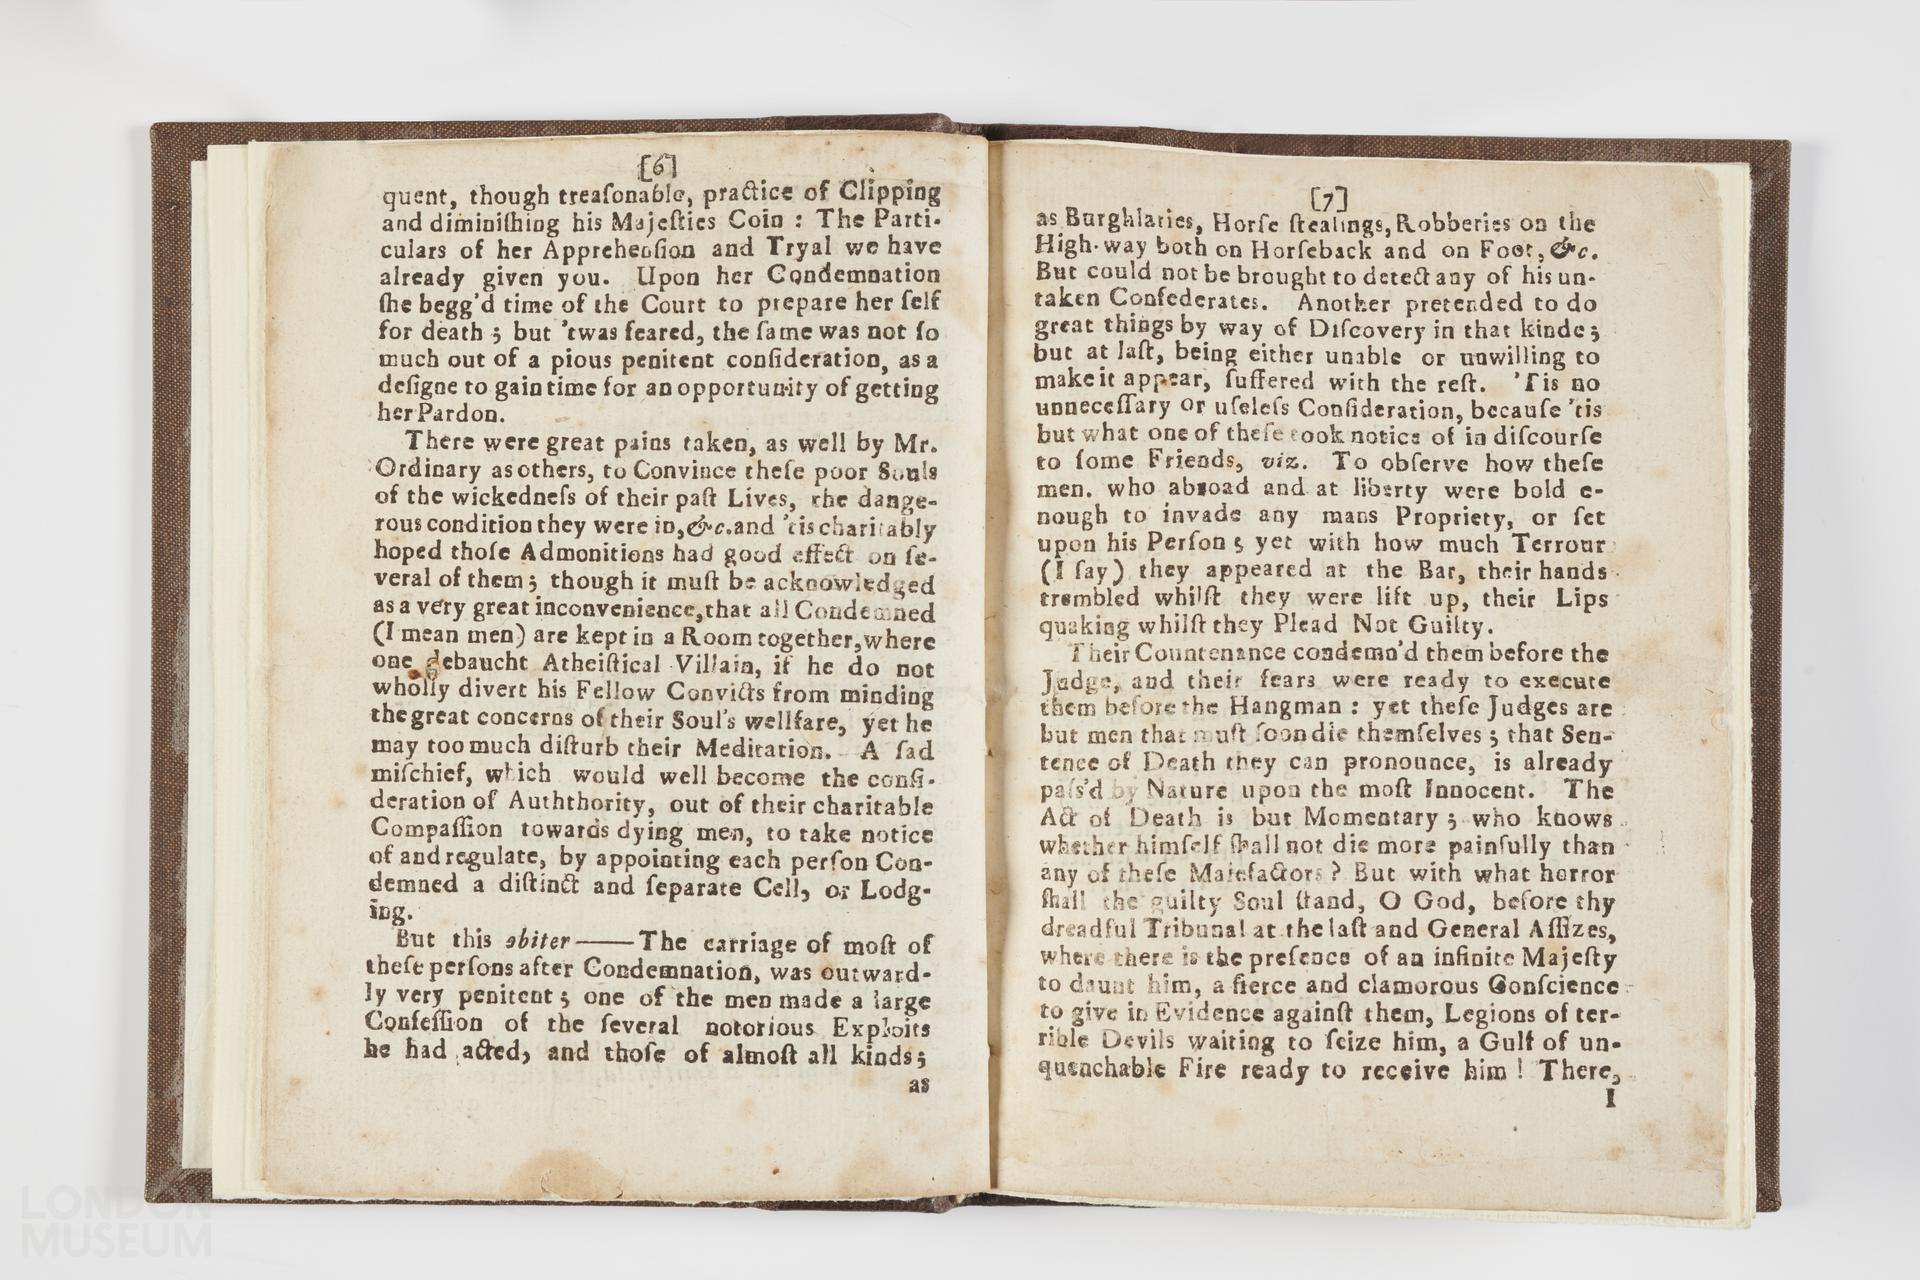 [6]
quent, though treaſonable, practice of Clipping
and diminiſhing his Majeſties Coin : The Parti-
culars of her Apprehenſion and Tryal we have
already given you. Upon her Condemnation
ſhe begg'd time of the Court to prepare her ſelf
for death ; but 'twas feared, the ſame was not ſo
much out of a pious penitent conſideration, as a
deſigne to gain time for an opportunity of getting
her Pardon.
There were great pains taken, as well by Mr.
Ordinary as others, to Convince theſe poor Souls
of the wickedneſs of their paſt Lives, the dange-
rous condition they were in, &c. and 'tis charitably
hoped thoſe Admonitions had good effect on ſe-
veral of them ; though it muſt be acknowledged
as a very great inconvenience, that all Condemned
(I mean men) are kept in a Room together, where
one debaucht Atheiſtical Villain, if he do not
wholly divert his Fellow Convicts from minding
the great concerns of their Soul's wellfare, yet he
may too much diſturb their Meditation. A ſad
miſchief, which would well become the conſi-
deration of Auththority, out of their charitable
Compaſſion towards dying men, to take notice
of and regulate, by appointing each perſon Con-
demned a diſtinct and ſeparate Cell, or Lodg-
ing.
But this obiter —— The carriage of moſt of
theſe perſons after Condemnation, was outward-
ly very penitent ; one of the men made a large
Confeſſion of the ſeveral notorious Exploits
he had acted, and thoſe of almoſt all kinds ;
as
[7]
as Burghlaries, Horſe ſtealings, Robberies on the
High-way both on Horſeback and on Foot, &c.
But could not be brought to detect any of his un-
taken Confederates. Another pretended to do
great things by way of Diſcovery in that kinde ;
but at laſt, being either unable or unwilling to
make it appear, ſuffered with the reſt. 'Tis no
unneceſſary or uſeleſs Conſideration, becauſe 'tis
but what one of theſe took notice of in diſcourſe
to ſome Friends, viz. To obſerve how theſe
men. who abroad and at liberty were bold e-
nough to invade any mans Propriety, or ſet
upon his Perſon ; yet with how much Terrour
(I ſay) they appeared at the Bar, their hands
trembled whilſt they were lift up, their Lips
quaking whilſt they Plead Not Guilty.
Their Countenance condemn'd them before the
Judge, and their fears were ready to execute
them before the Hangman : yet theſe Judges are
but men that muſt ſoon die themſelves ; that Sen-
tence of Death they can pronounce, is already
paſs'd by Nature upon the moſt Innocent. The
Act of Death is but Momentary ; who knows
whether himſelf ſhall not die more painfully than
any of theſe Malefactors ? But with what horror
ſhall the guilty Soul ſtand, O God, before thy
dreadful Tribunal at the laſt and General Aſſizes,
where there is the preſence of an infinite Majeſty
to daunt him, a fierce and clamorous Conſcience
to give in Evidence againſt them, Legions of ter-
rible Devils waiting to ſeize him, a Gulf of un-
quenchable Fire ready to receive him ! There,
I
LONDON
MUSEUM